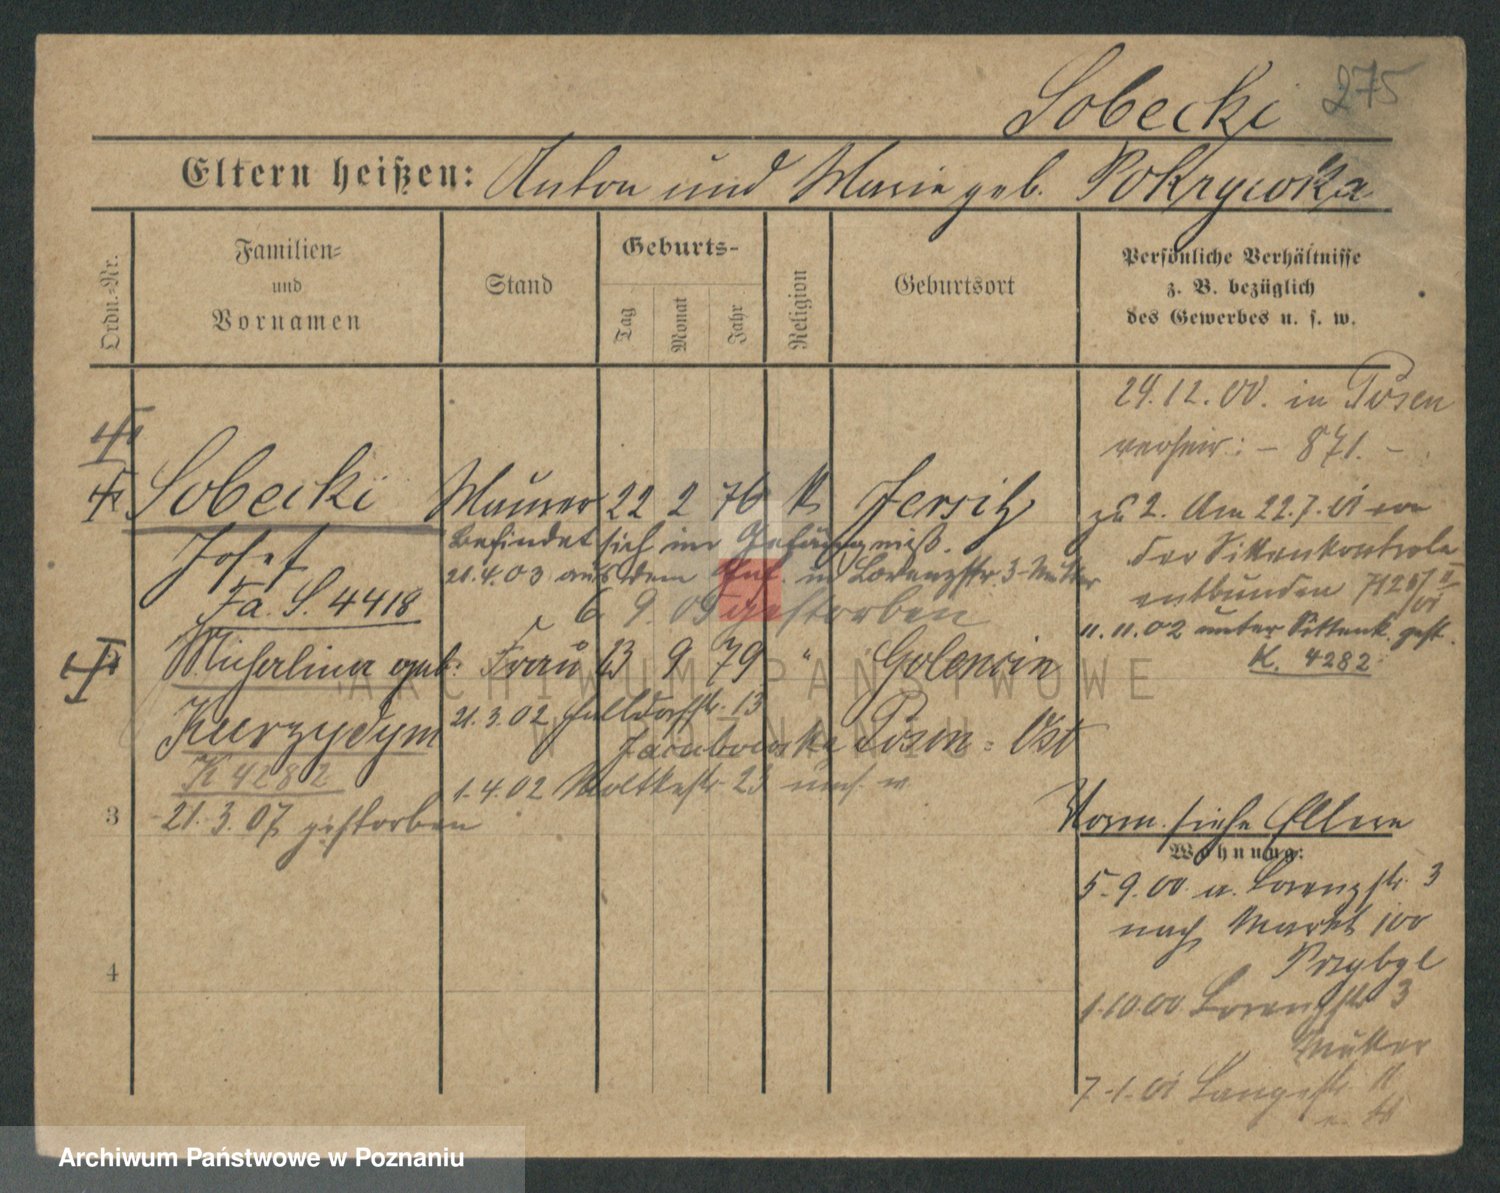 Sobecki 275
Eltern heißen: Anton und Marie geb. Pokrywka
Ordn.-Nr.
Familien-
und
Vornamen
Stand
Geburts-
Tag
Monat
Jahr
Religion
Geburtsort
Persönliche Verhältnisse
z. B. bezüglich
des Gewerbes u. s. w.
24.12.00. in Posen
verheir: - 871. -
Sobecki Maurer 22 2 76 k Jersitz
Josef
Befindet sich im Gefängniß.
21.4.03 aus dem Gef. in Lorenzstr. 3 Mutter
Fa. S. 4418
6. 9. 05 gestorben
zu 2. Am 22.7.01 von
der Sittenkontrole
entbunden
11.11.02 unter Sittenk. gest.
K. 4282
Michalina geb. Frau 13 9 79 " Golencin
Kurzydym Posen-Ost
21.3.02 Halldorfstr. 13
K 4282
1.4.02 Moltkestr. 23
3
21.3.07 gestorben
Vorm. siehe Eltern
Wohnung:
5.9.00 a. Lorenzstr. 3
nach Markt 100
Przybyl
4
1.10.00 Lorenzstr 3
Mutter
7.1.01 Langestr. 11
ARCHIWUM PAŃSTWOWE
W POZNANIU
Archiwum Państwowe w Poznaniu